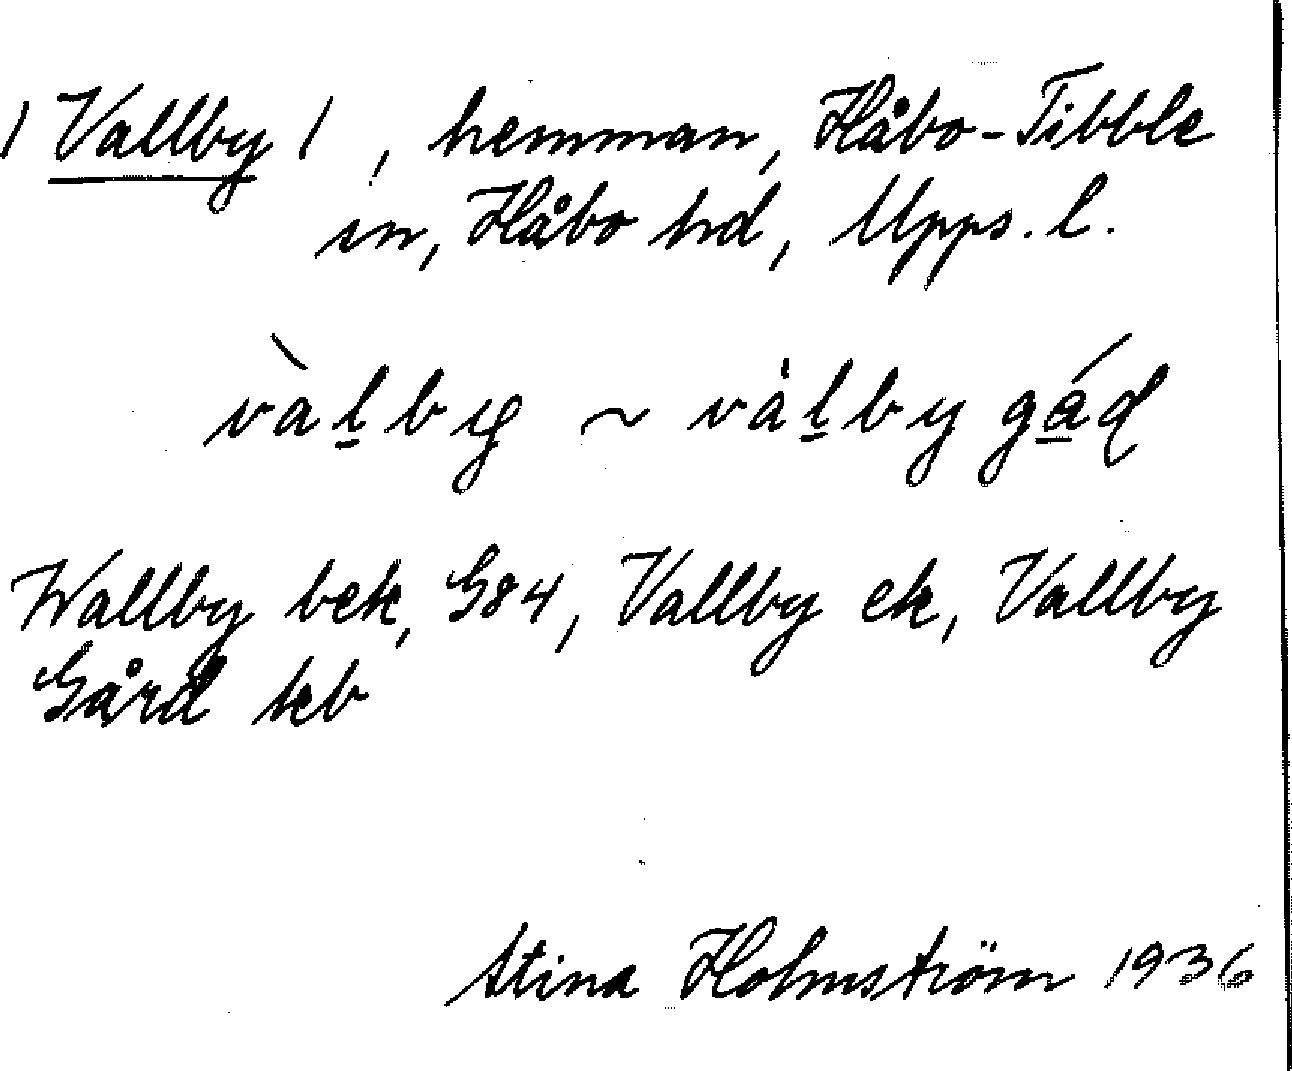 /Vallby/, hemman, Håbo-Tibble
sn, Håbo hd, Upps. l.
va̱lby ~ va̱lby gåd
Wallby bek, G84, Vallby ek, Vallby
Gård kb
Stina Holmström 1936